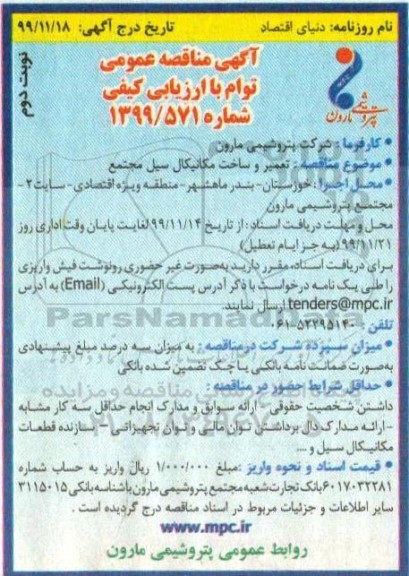 نام روزنامه: دنیای اقتصاد تاریخ درج آگهی: ۹۹/۱۱/۱۸
نوبت دوم
آگهی مناقصه عمومی
توام با ارزیابی کیفی
شماره ۱۳۹۹/۵۷۱
پتروشیمی مارون
• کارفرما: شرکت پتروشیمی مارون
• موضوع مناقصه: تعمیر و ساخت مکانیکال سیل مجتمع
• محل اجرا: خوزستان-بندر ماهشهر-منطقه ویژه اقتصادی-سایت ۲-
مجتمع پتروشیمی مارون
محل و مهلت دریافت اسناد: از تاریخ ۹۹/۱۱/۱۴ لغایت پایان وقت اداری روز
۹۹/۱۱/۲۱ (به جز ایام تعطیل)
برای دریافت اسناد، مقرر دارید به‌صورت غیر حضوری رونوشت فیش واریزی
را طی یک نامه درخواست با ذکر آدرس پست الکترونیکی (Email) به آدرس
tenders@mpc.ir ارسال نمایند.
تلفن: ۰۶۱-۵۲۲۹۵۱۴۰
ParsNamadData
• میزان سپرده شرکت در مناقصه: به میزان سه درصد مبلغ پیشنهادی
به‌صورت ضمانت نامه بانکی یا چک تضمین شده بانکی
• حداقل شرایط حضور در مناقصه:
داشتن شخصیت حقوقی - ارائه سوابق و مدارک انجام حداقل سه کار مشابه
- ارائه مدارک دال برداشتن توان مالی و توان تجهیزاتی - سازنده قطعات
مکانیکال سیل و ...
• قیمت اسناد و نحوه واریز: مبلغ ۱/۰۰۰/۰۰۰ ریال واریز به حساب شماره
۶۰۱۷۰۳۲۲۸۱ بانک تجارت شعبه مجتمع پتروشیمی مارون با شناسه بانکی ۳۱۱۵۰۱۵
سایر اطلاعات و جزئیات مربوط در اسناد مناقصه درج گردیده است.
www.mpc.ir
روابط عمومی پتروشیمی مارون